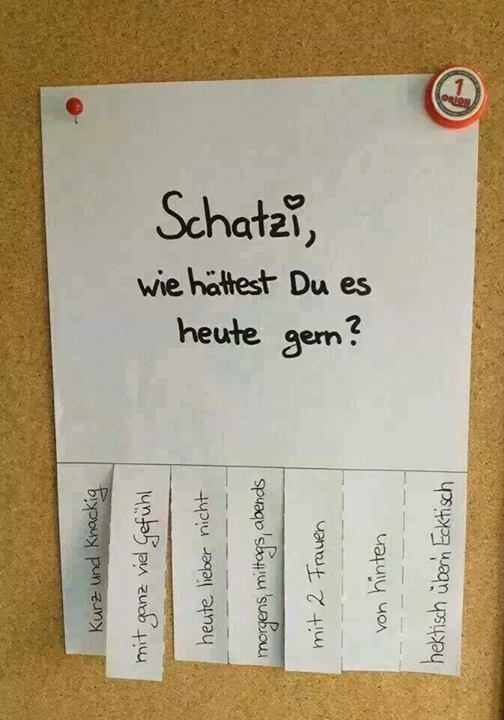 1
ORION
Schatzi,
wie hättest Du es
heute gern?
kurz und knackig
mit ganz viel Gefühl
heute lieber nicht
morgens, mittags, abends
mit 2 Frauen
von hinten
hektisch über'n Ecktisch